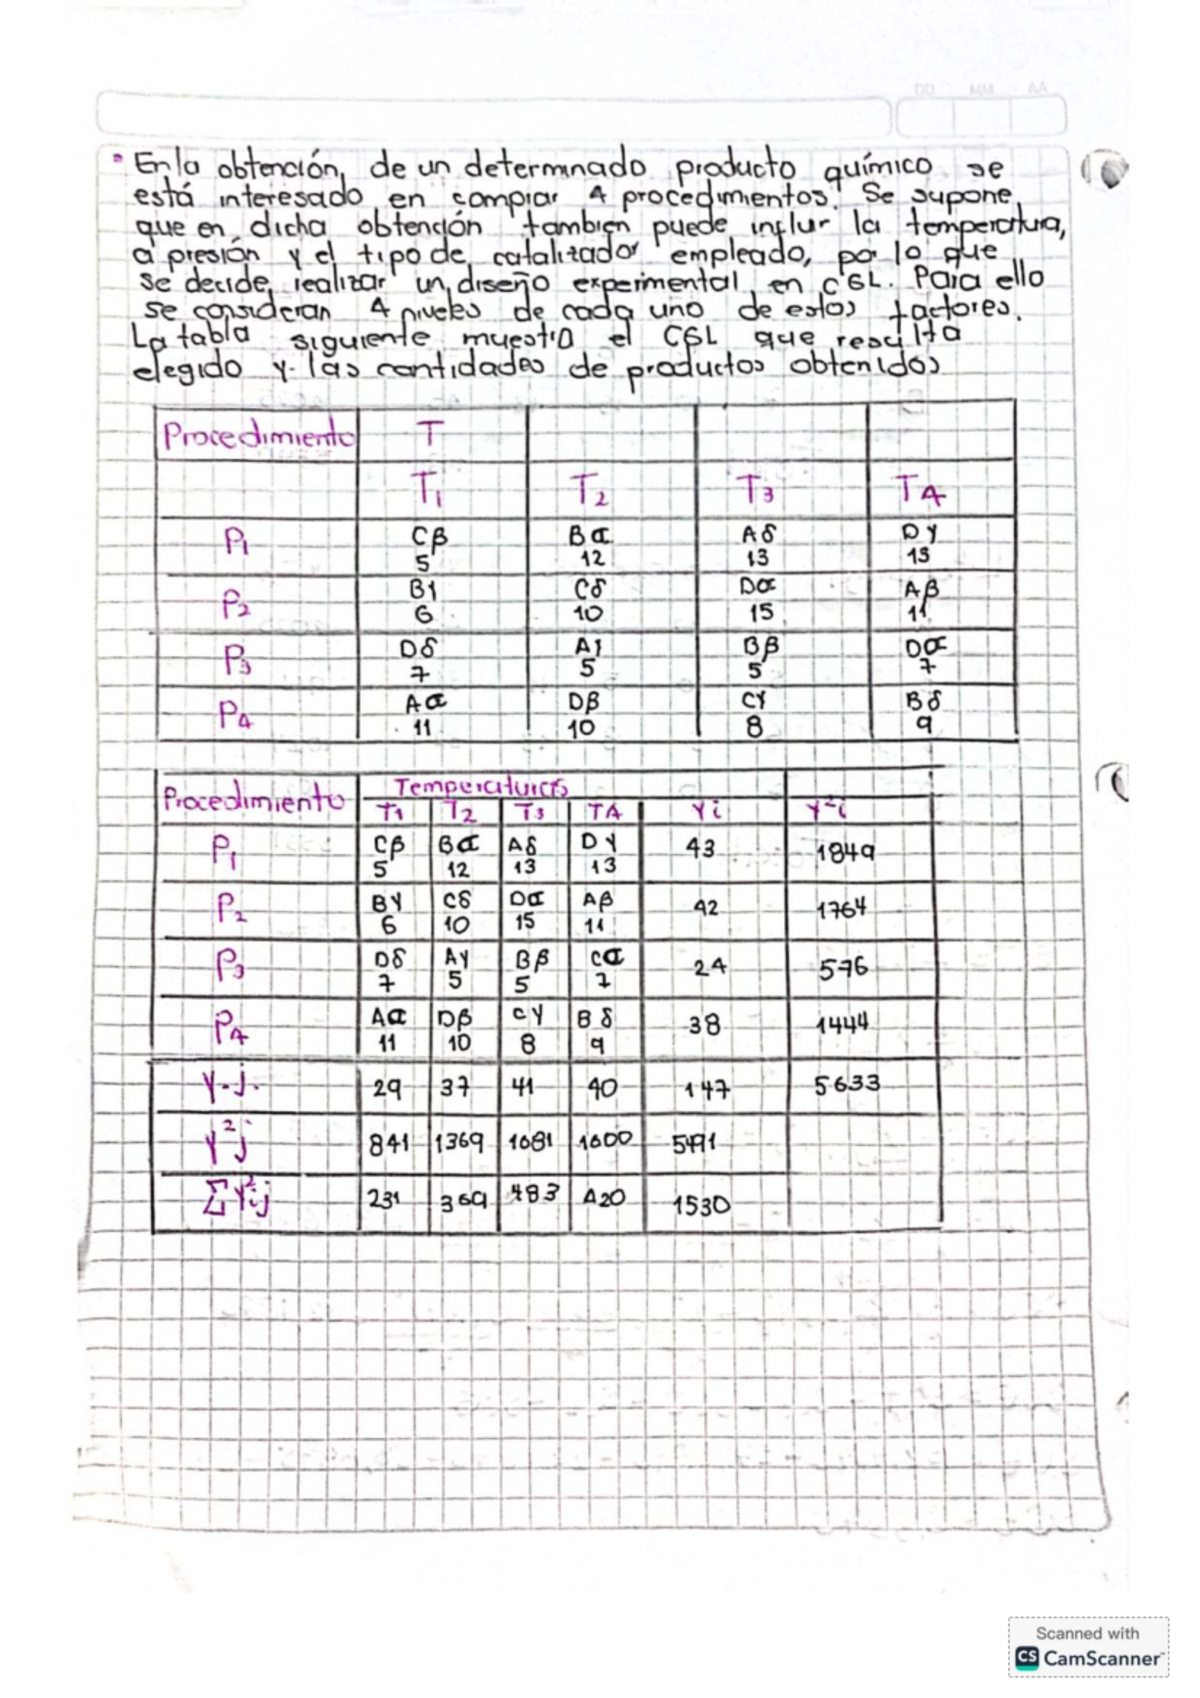 DD MM AA
• En la obtención, de un determinado producto químico se
está interesado en comprar 4 procedimientos. Se supone
que en dicha obtención tambien puede influir la temperatura,
a presión y el tipo de catalizador empleado, por lo que
se decide realizar un diseño experimental en CGL. Para ello
se consideran 4 niveles de cada uno de estos factores.
La tabla siguiente muestra el CGL que resulta
elegido y las cantidades de productos obtenidos
Procedimiento T
T1 T2 T3 T4
P1 Cβ Bα Aδ Dγ
5 12 13 13
P2 Bγ Cδ Dα Aβ
6 10 15 11
P3 Dδ Aγ Bβ Dα
7 5 5 7
P4 Aα Dβ Cγ Bδ
11 10 8 9
Procedimiento Temperaturas
T1 T2 T3 T4 Yi Y²i
P1 Cβ Bα Aδ Dγ 43 1849
5 12 13 13
P2 Bγ Cδ Dα Aβ 42 1764
6 10 15 11
P3 Dδ Aγ Bβ Cα 24 576
7 5 5 7
P4 Aα Dβ Cγ Bδ 38 1444
11 10 8 9
Y.j. 29 37 41 40 147 5633
Y²j 841 1369 1681 1600 5491
ΣY²ij 231 369 483 420 1530
Scanned with
CS CamScanner